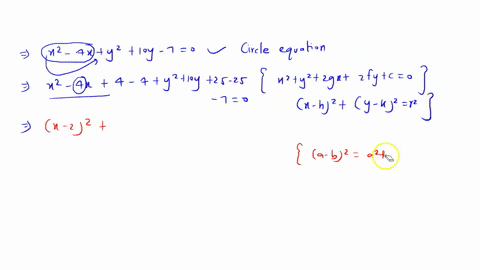 ⇒ x² - 4x + y² + 10y - 7 = 0 ✓ Circle equation
⇒ x² - 4x + 4 - 4 + y² + 10y + 25 - 25 { x² + y² + 2gx + 2fy + c = 0 }
- 7 = 0 (x-h)² + (y-k)² = r² }
⇒ (x-2)² +
{ (a-b)² = a² +